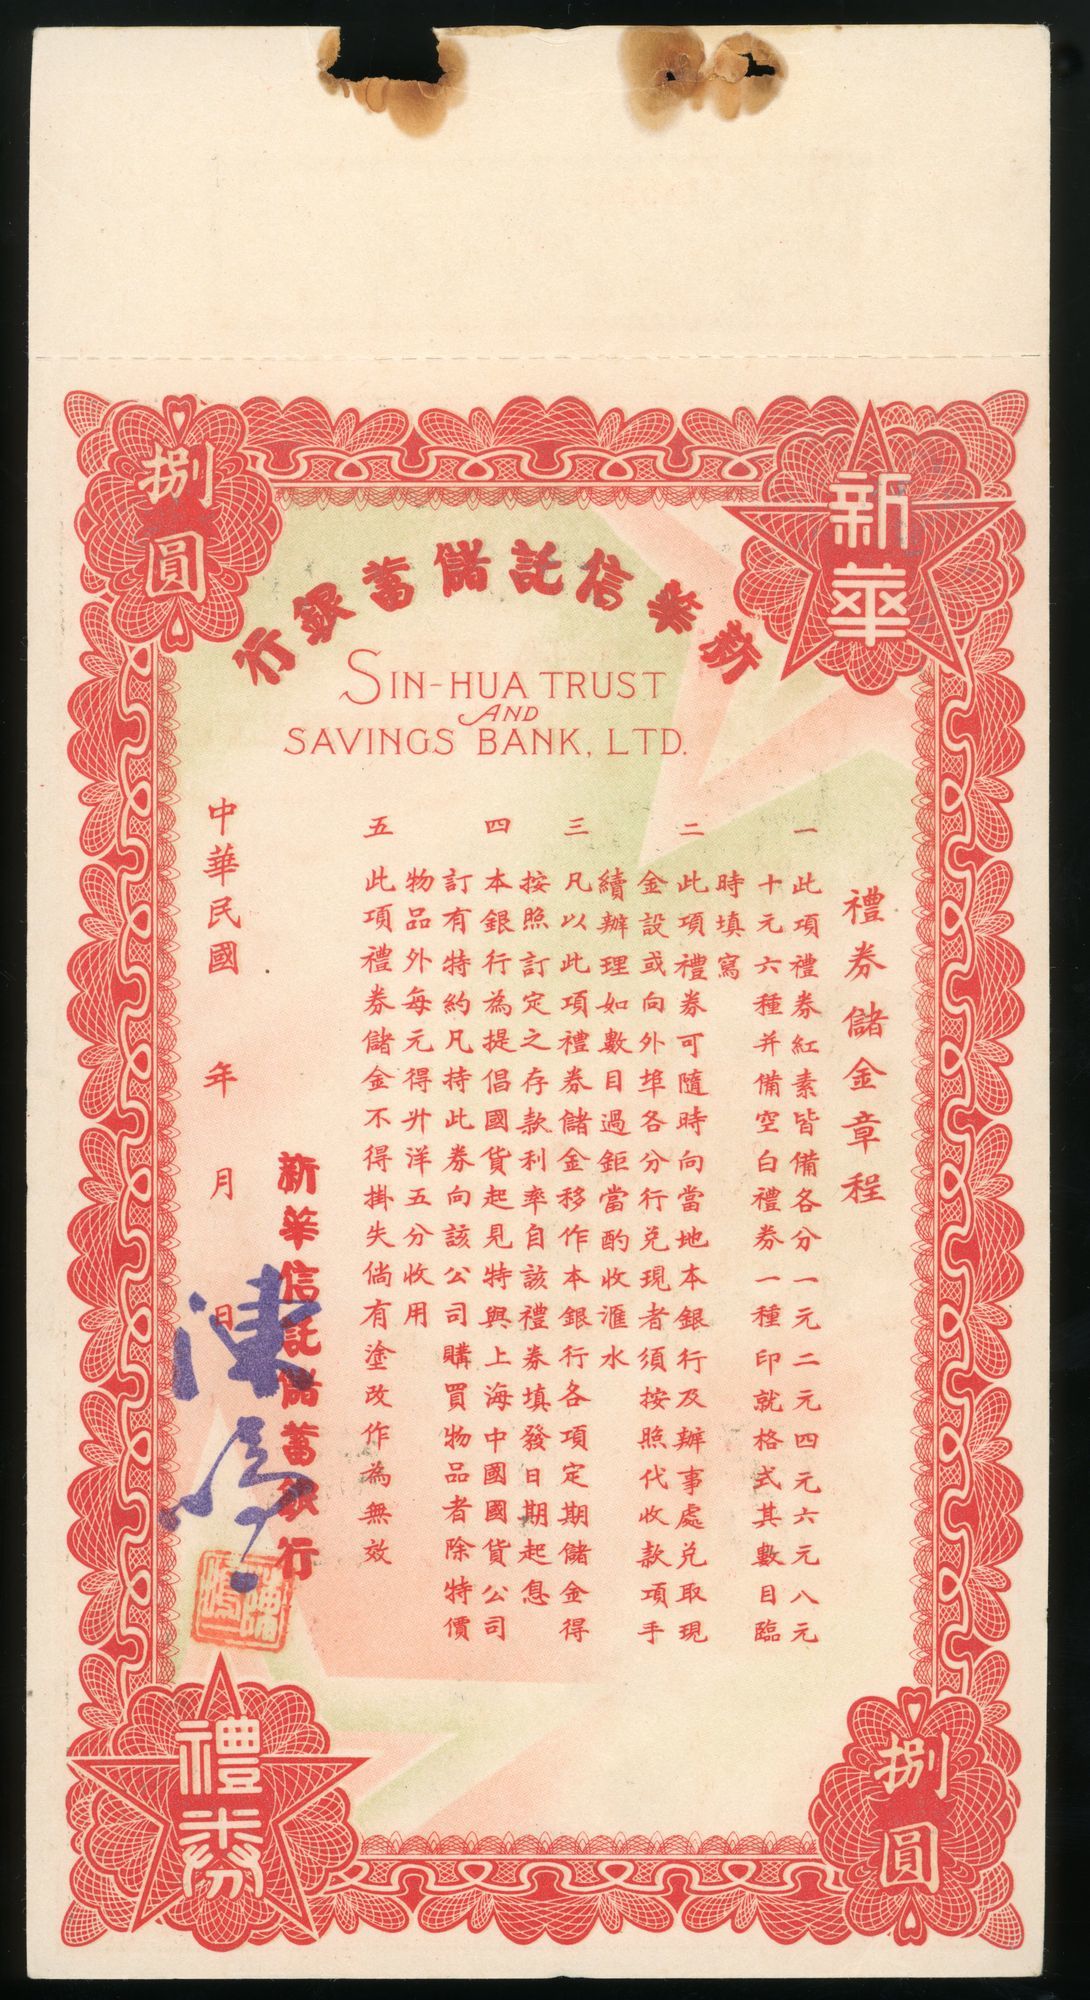 捌圓
新華
新華信託儲蓄銀行
SIN-HUA TRUST
AND
SAVINGS BANK, LTD.
禮券儲金章程
一 此項禮券紅素皆備各分一元二元四元六元八元
十元六種并備空白禮券一種印就格式其數目臨
時填寫
二 此項禮券可隨時向當地本銀行及辦事處兑取現
金設或向外埠各分行兑現者須按照代收款項手
續辦理如數目過鉅當酌收滙水
三 凡以此項禮券儲金移作本銀行各項定期儲金得
按照訂定之存款利率自該禮券填發日期起息
四 本銀行為提倡國貨起見特與上海中國國貨公司
訂有特約凡持此券向該公司購買物品者除特價
物品外每元得升洋五分收用
五 此項禮券儲金不得掛失倘有塗改作為無效
新華信託儲蓄銀行
中華民國 年 月 日
禮券
捌圓